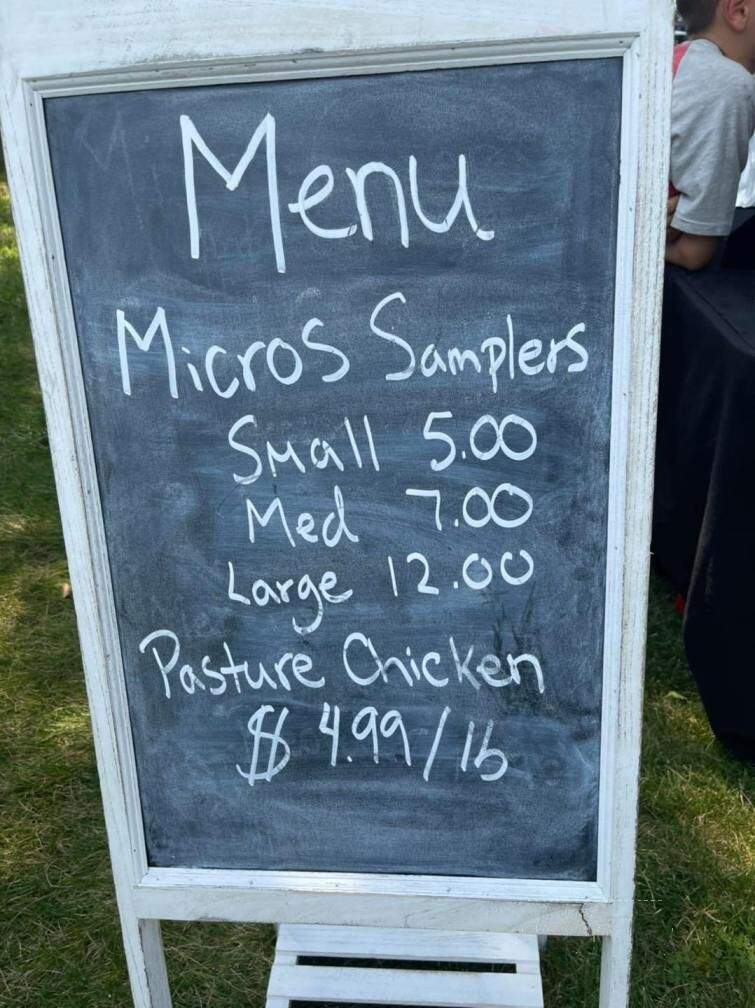 Menu
Micros Samplers
Small 5.00
Med 7.00
Large 12.00
Pasture Chicken
$ 4.99/lb